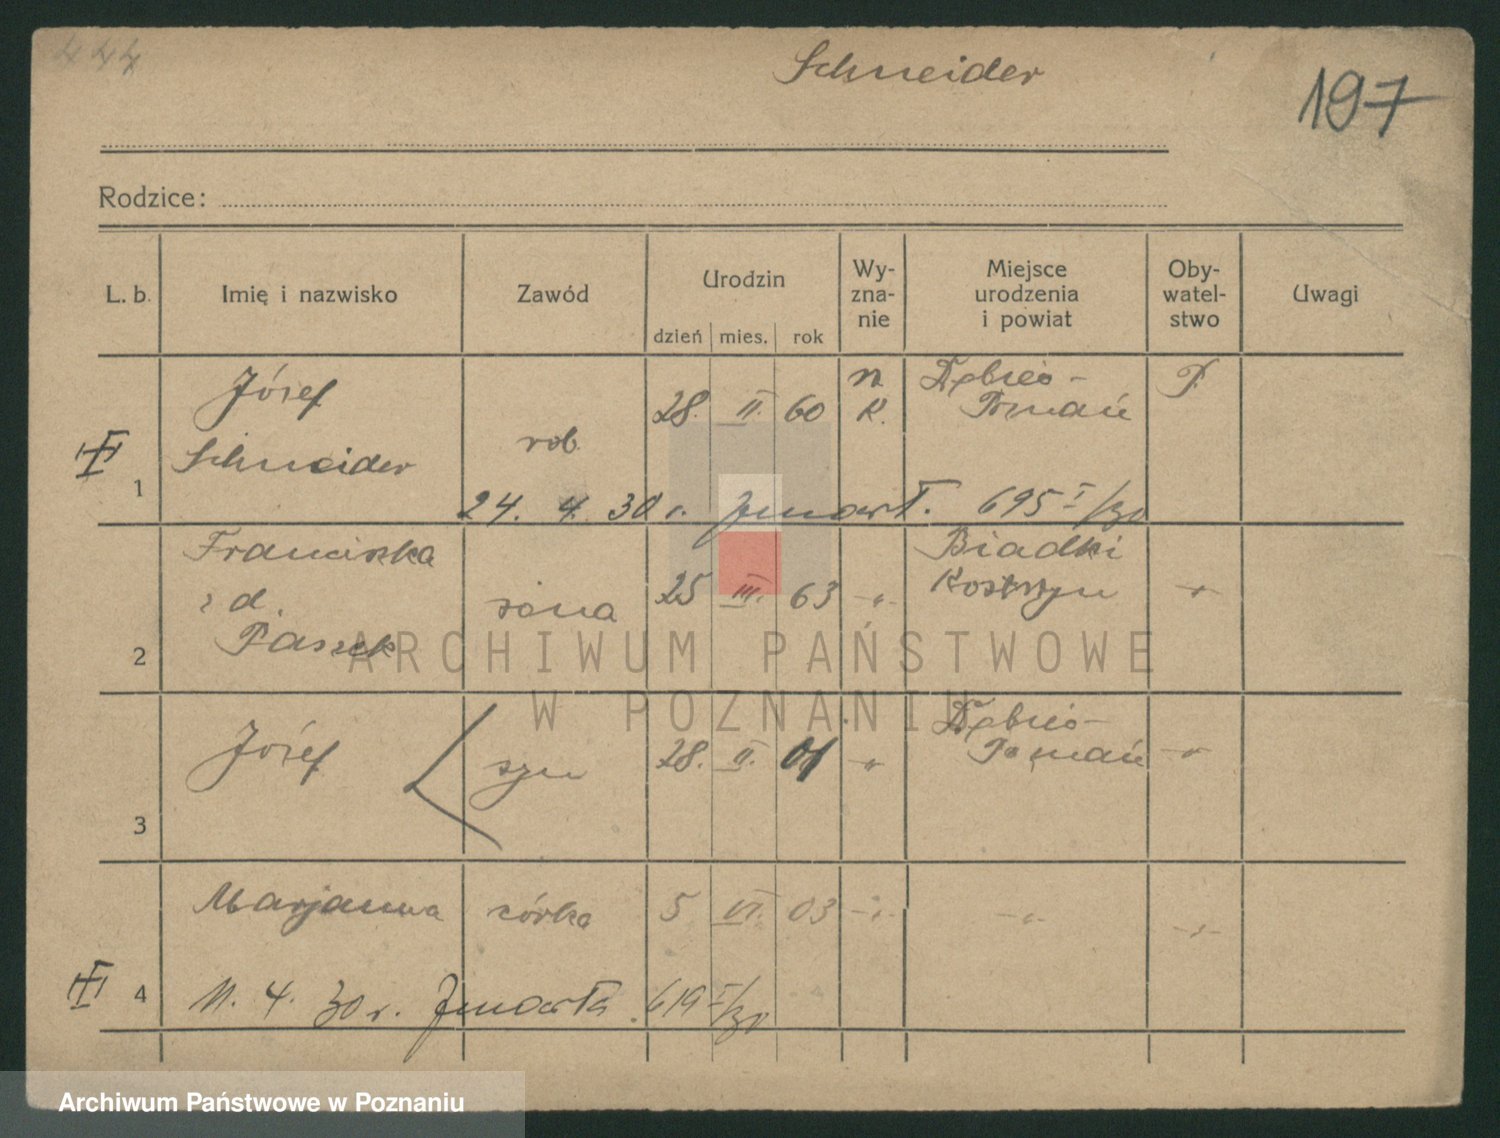 444
Schneider
197
Rodzice:
L. b. Imię i nazwisko Zawód Urodzin dzień mies. rok Wy-zna-nie Miejsce urodzenia i powiat Oby-watel-stwo Uwagi
Józef rob. 28. II. 60 K. Dębiec - Poznań P.
Schneider
1
24. 4. 30 r. zmarł. 695 I/30
Franciszka żona 25 III. 63 -"- Biadki -"-
z d. Kostrzyn
Paszek
2
ARCHIWUM PAŃSTWOWE
W POZNANIU
Józef syn 28. II. 01 -"- Dębiec - Poznań -"-
3
Marjanna córka 5 VI. 03 -"- -"- -"-
4 11. 4. 30 r. Zmarła. 619 I/30
Archiwum Państwowe w Poznaniu